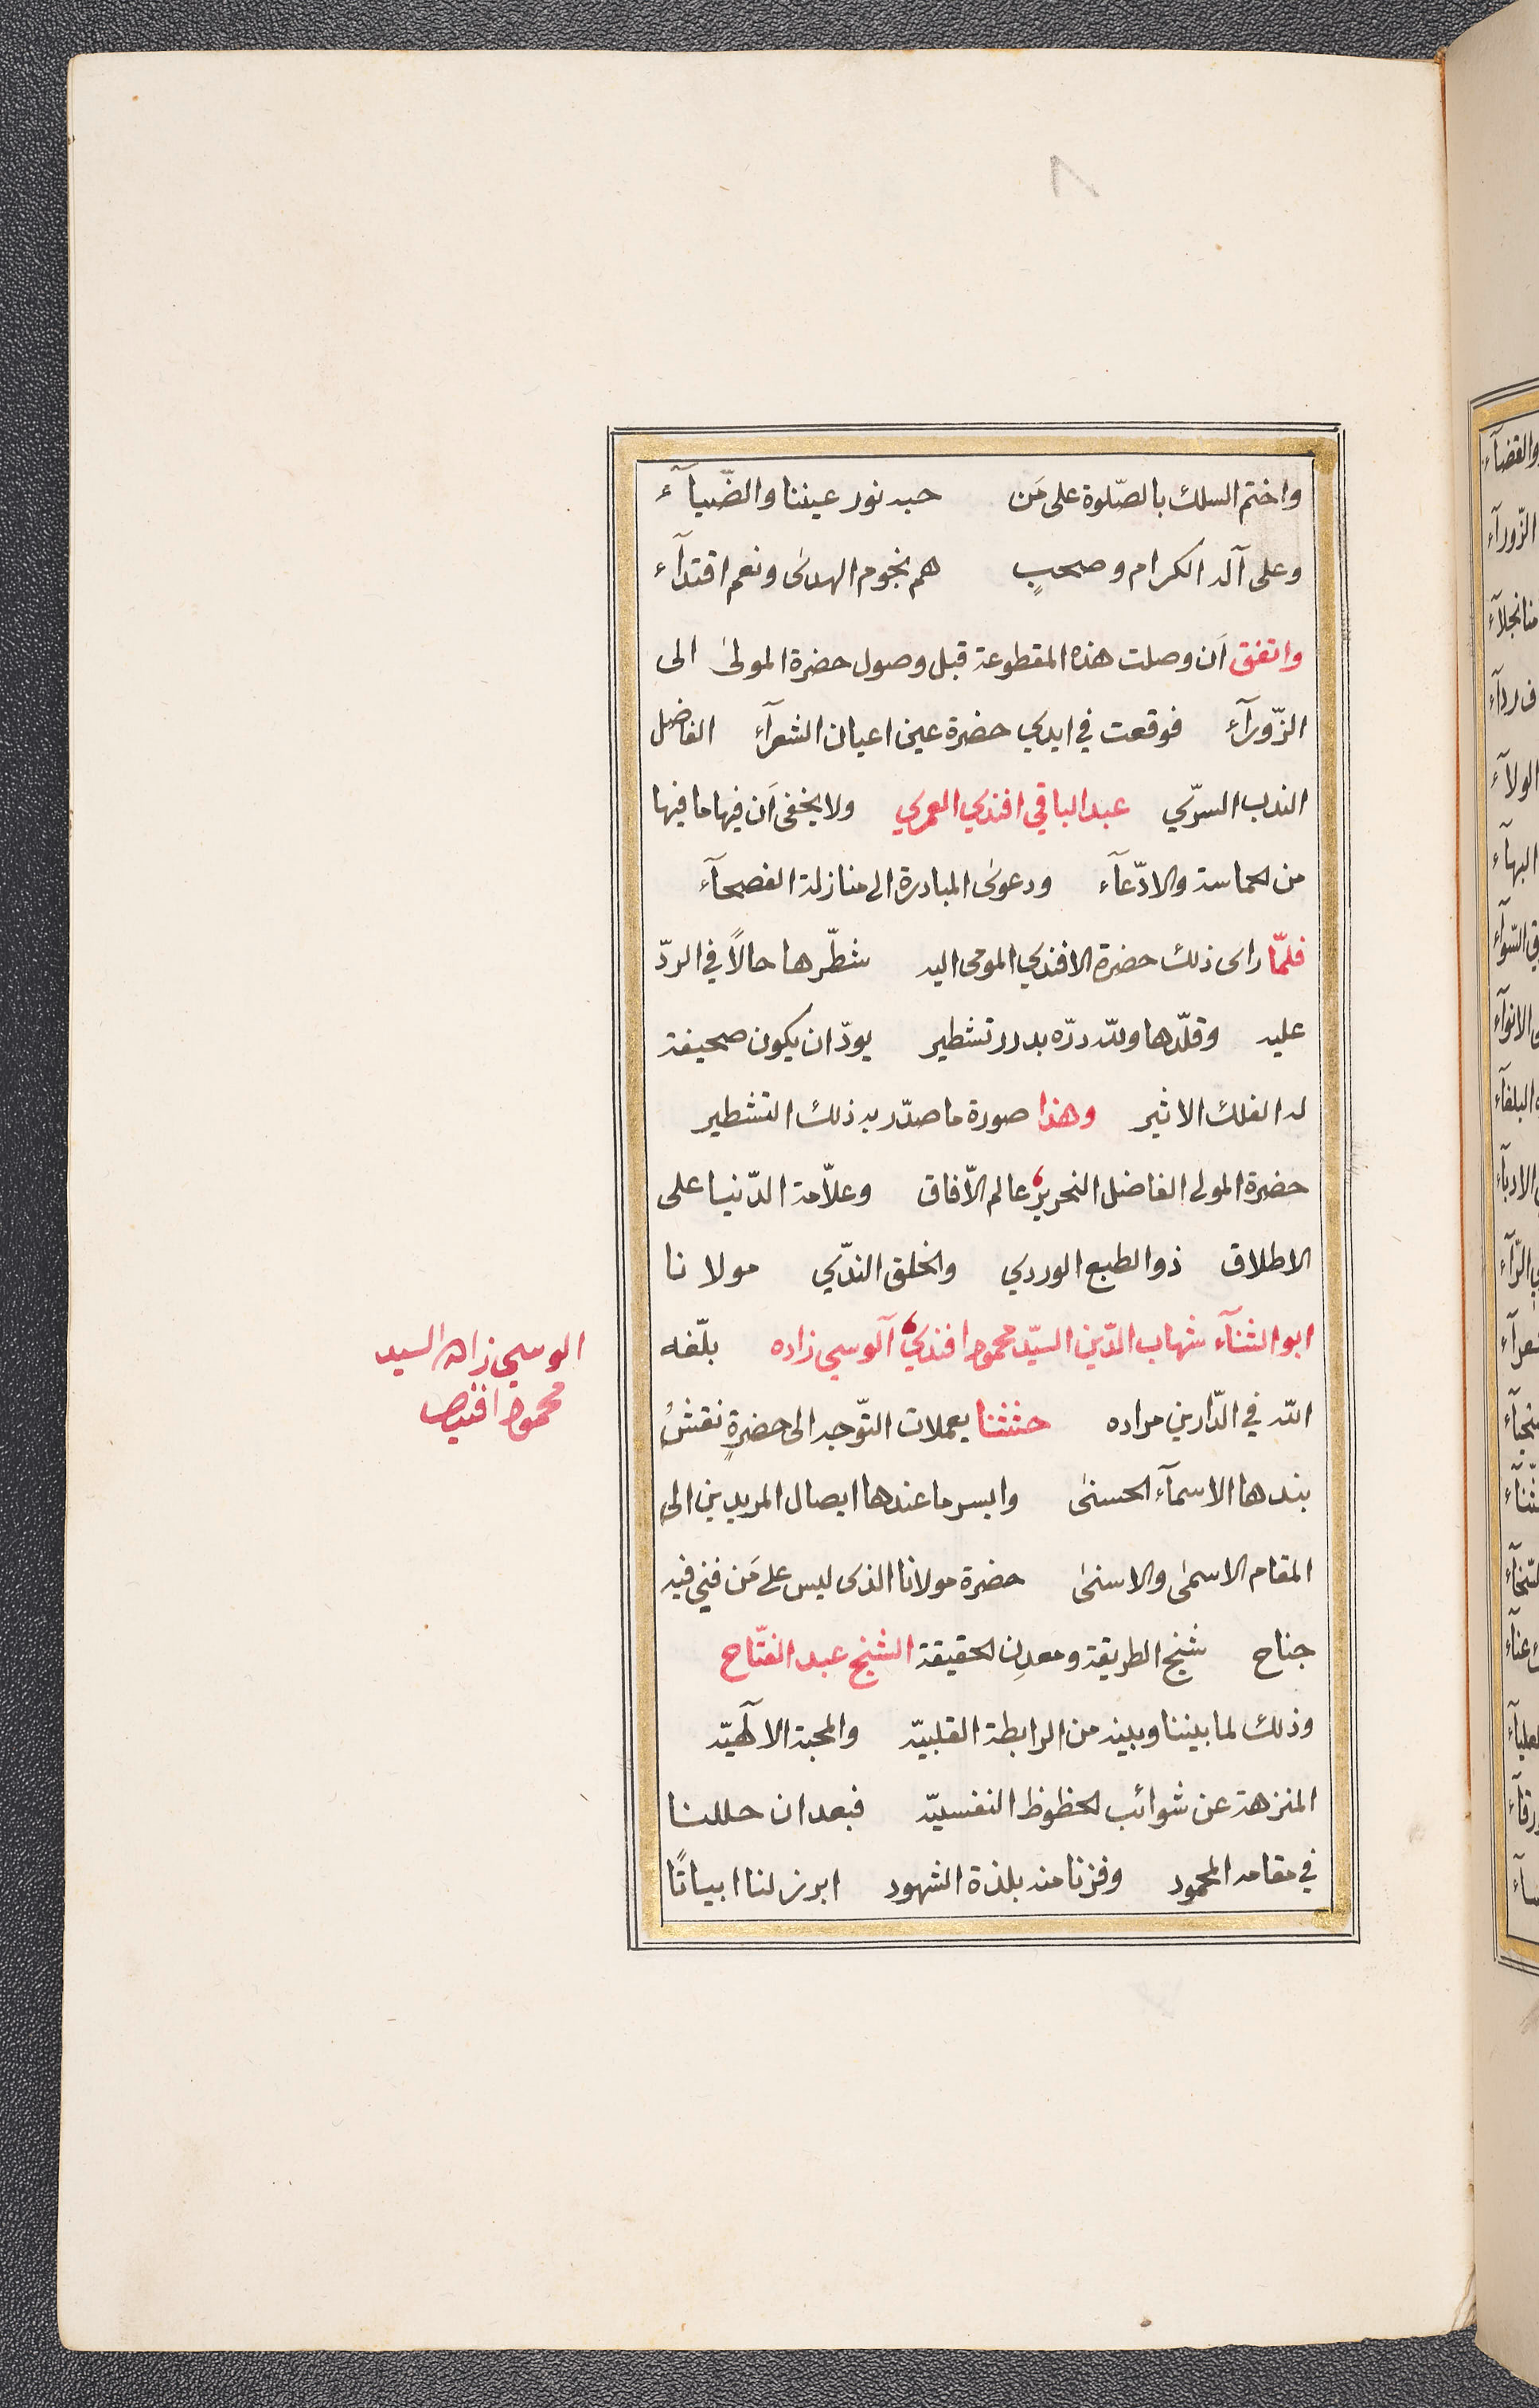 ٨
واختم السلك بالصّلوة على مَن حبه نور عيننا والضّيآء
وعلى آله الكرام وصحبٍ هم نجوم الهدى ونعم اقتدآء
واتفق اَن وصلت هذه المقطوعة قبل وصول حضرة المولىٰ الى
الزّورآء فوقعت في ايدي حضرة عين اعيان الشعرآء الفاضل
الندب السرّي عبد الباقي افندي العمري ولا يخفى اَن فيها ما فيها
من الحماسة والادّعآء ودعوى المبادرة الى منازلة الفصحآء
فلمّا راى ذلك حضرة الافندي المومى اليه شطّرها حالاً في الردّ
عليه وقلّدها ولله درّه بدرر تشطير يودّ ان يكون صحيفة
له الفلك الاثير وهذا صورة ما صدّر به ذلك التشطير
حضرة المولى الفاضل النحرير عالم الآفاق وعلاّمة الدّنيا على
الاطلاق ذو الطبع الوردي والخلق الندّي مولانا
ابو الثنآء شهاب الدّين السيّد محمود افندي آلوسي زاده بلّغه
الله في الدّارين مراده حثثنا يعملات التوّجه الى حضرةٍ نقشُ
بندها الاسمآء الحسنىٰ وايسر ما عندها ايصال المريدين الى
المقام الاسمىٰ والاسنىٰ حضرة مولانا الذى ليس على مَن فني فيه
جناح شيخ الطريقة ومعدِن الحقيقة الشيخ عبد الفتّاح
وذلك لما بيننا وبينه من الرابطة القلبيّه والمحبة الآلهيّه
المنزهة عن شوائب الحظوظ النفسيّه فبعد ان حللنا
في مقامه المحمود وفزنا منه بلذة الشهود ابرز لنا ابياتًا
الوسي زاده السيد
محمود افندى